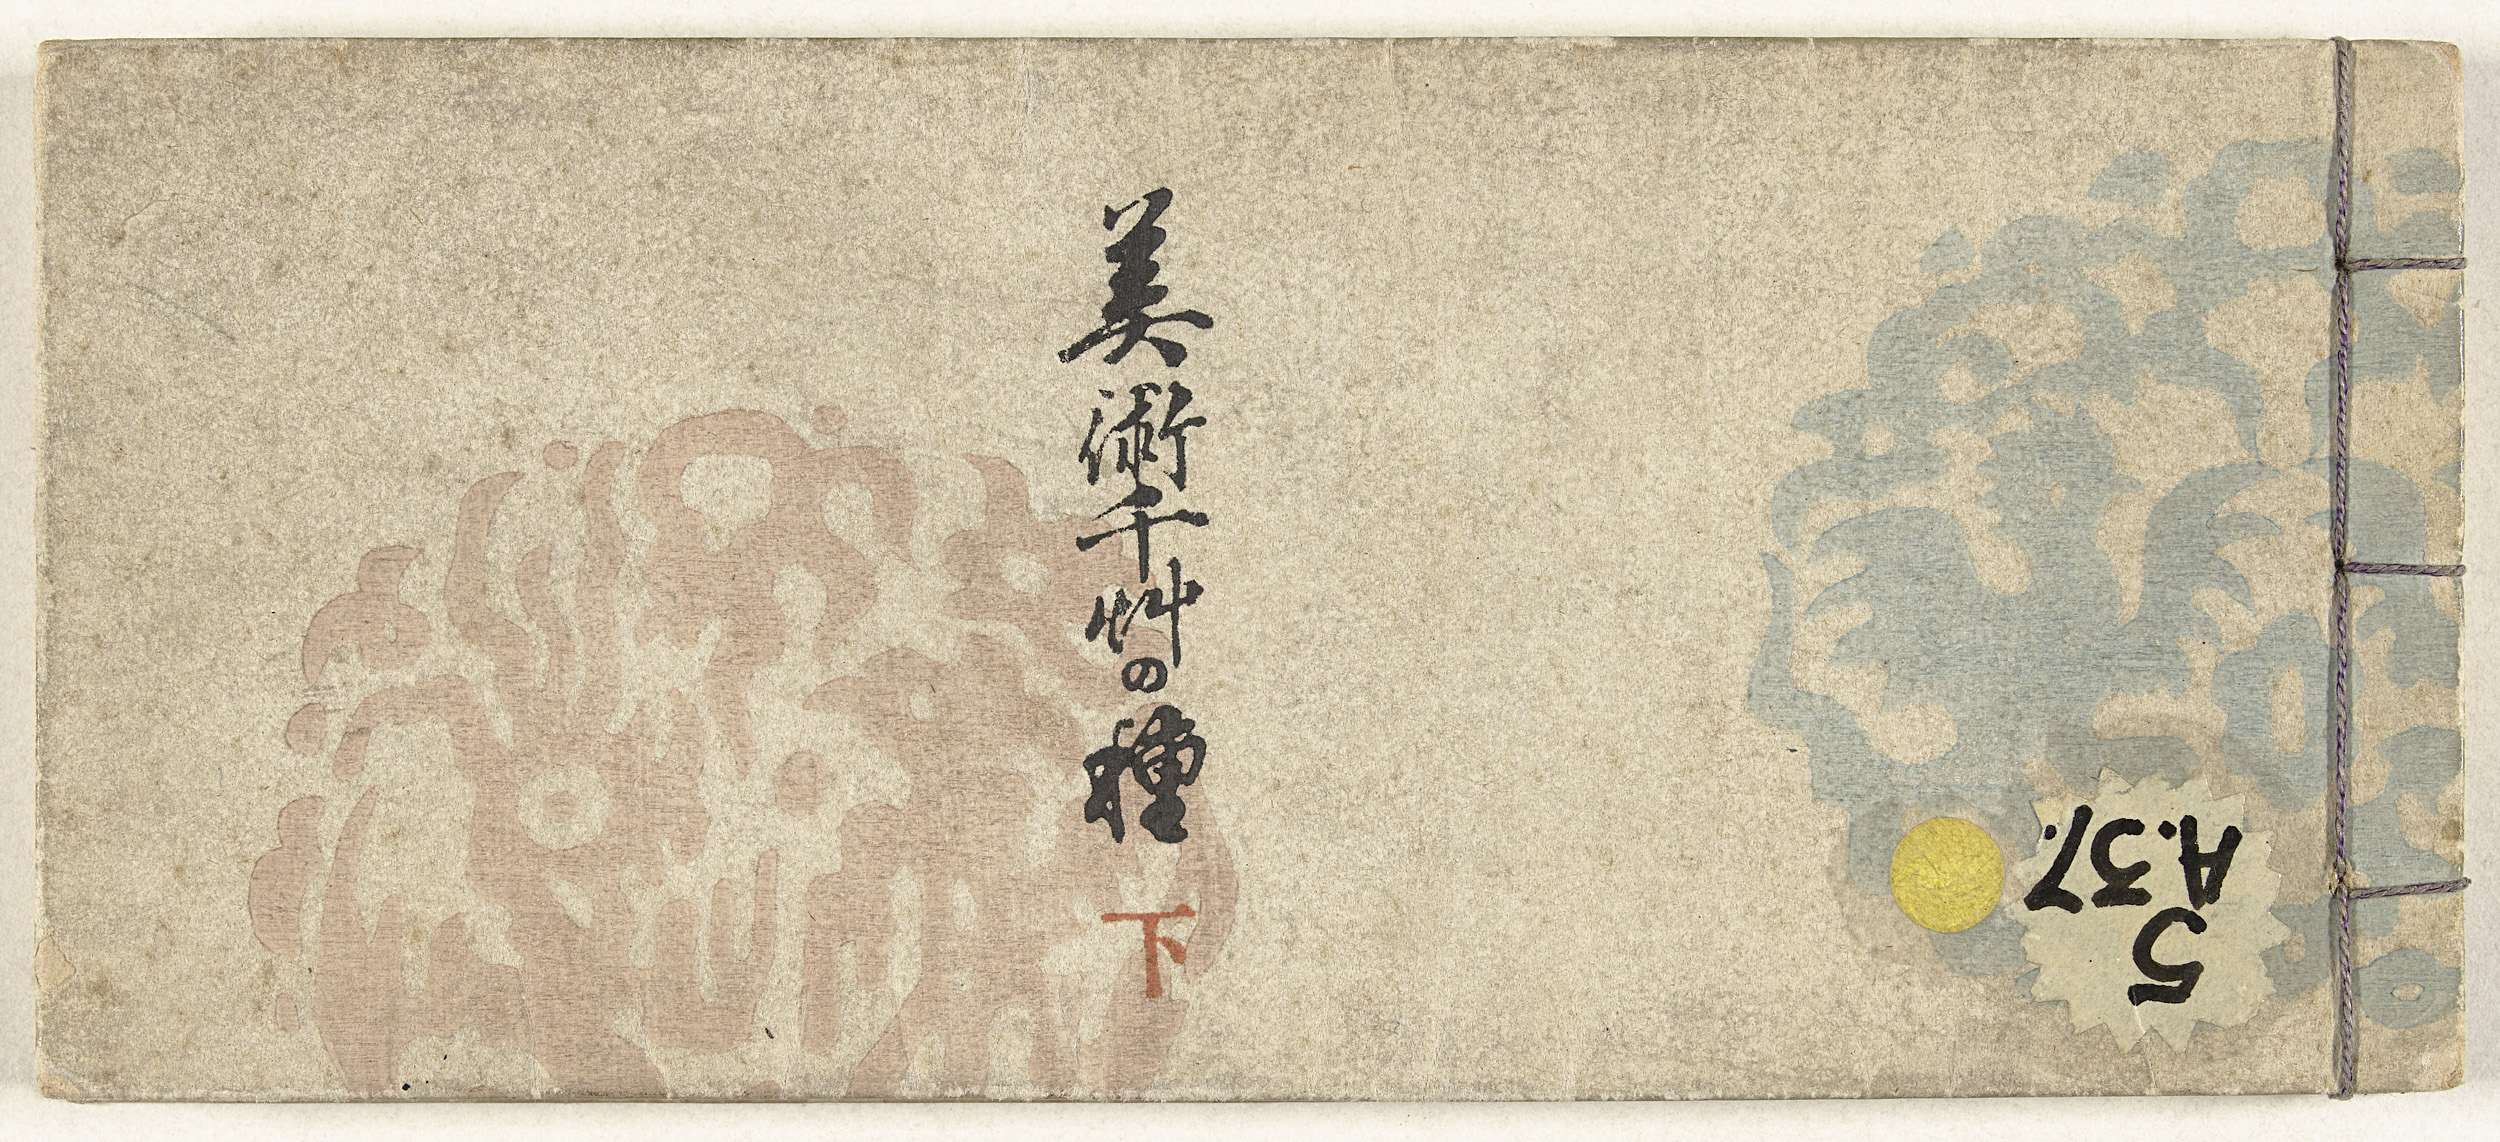 美術千艸の種
下
A.37.
5